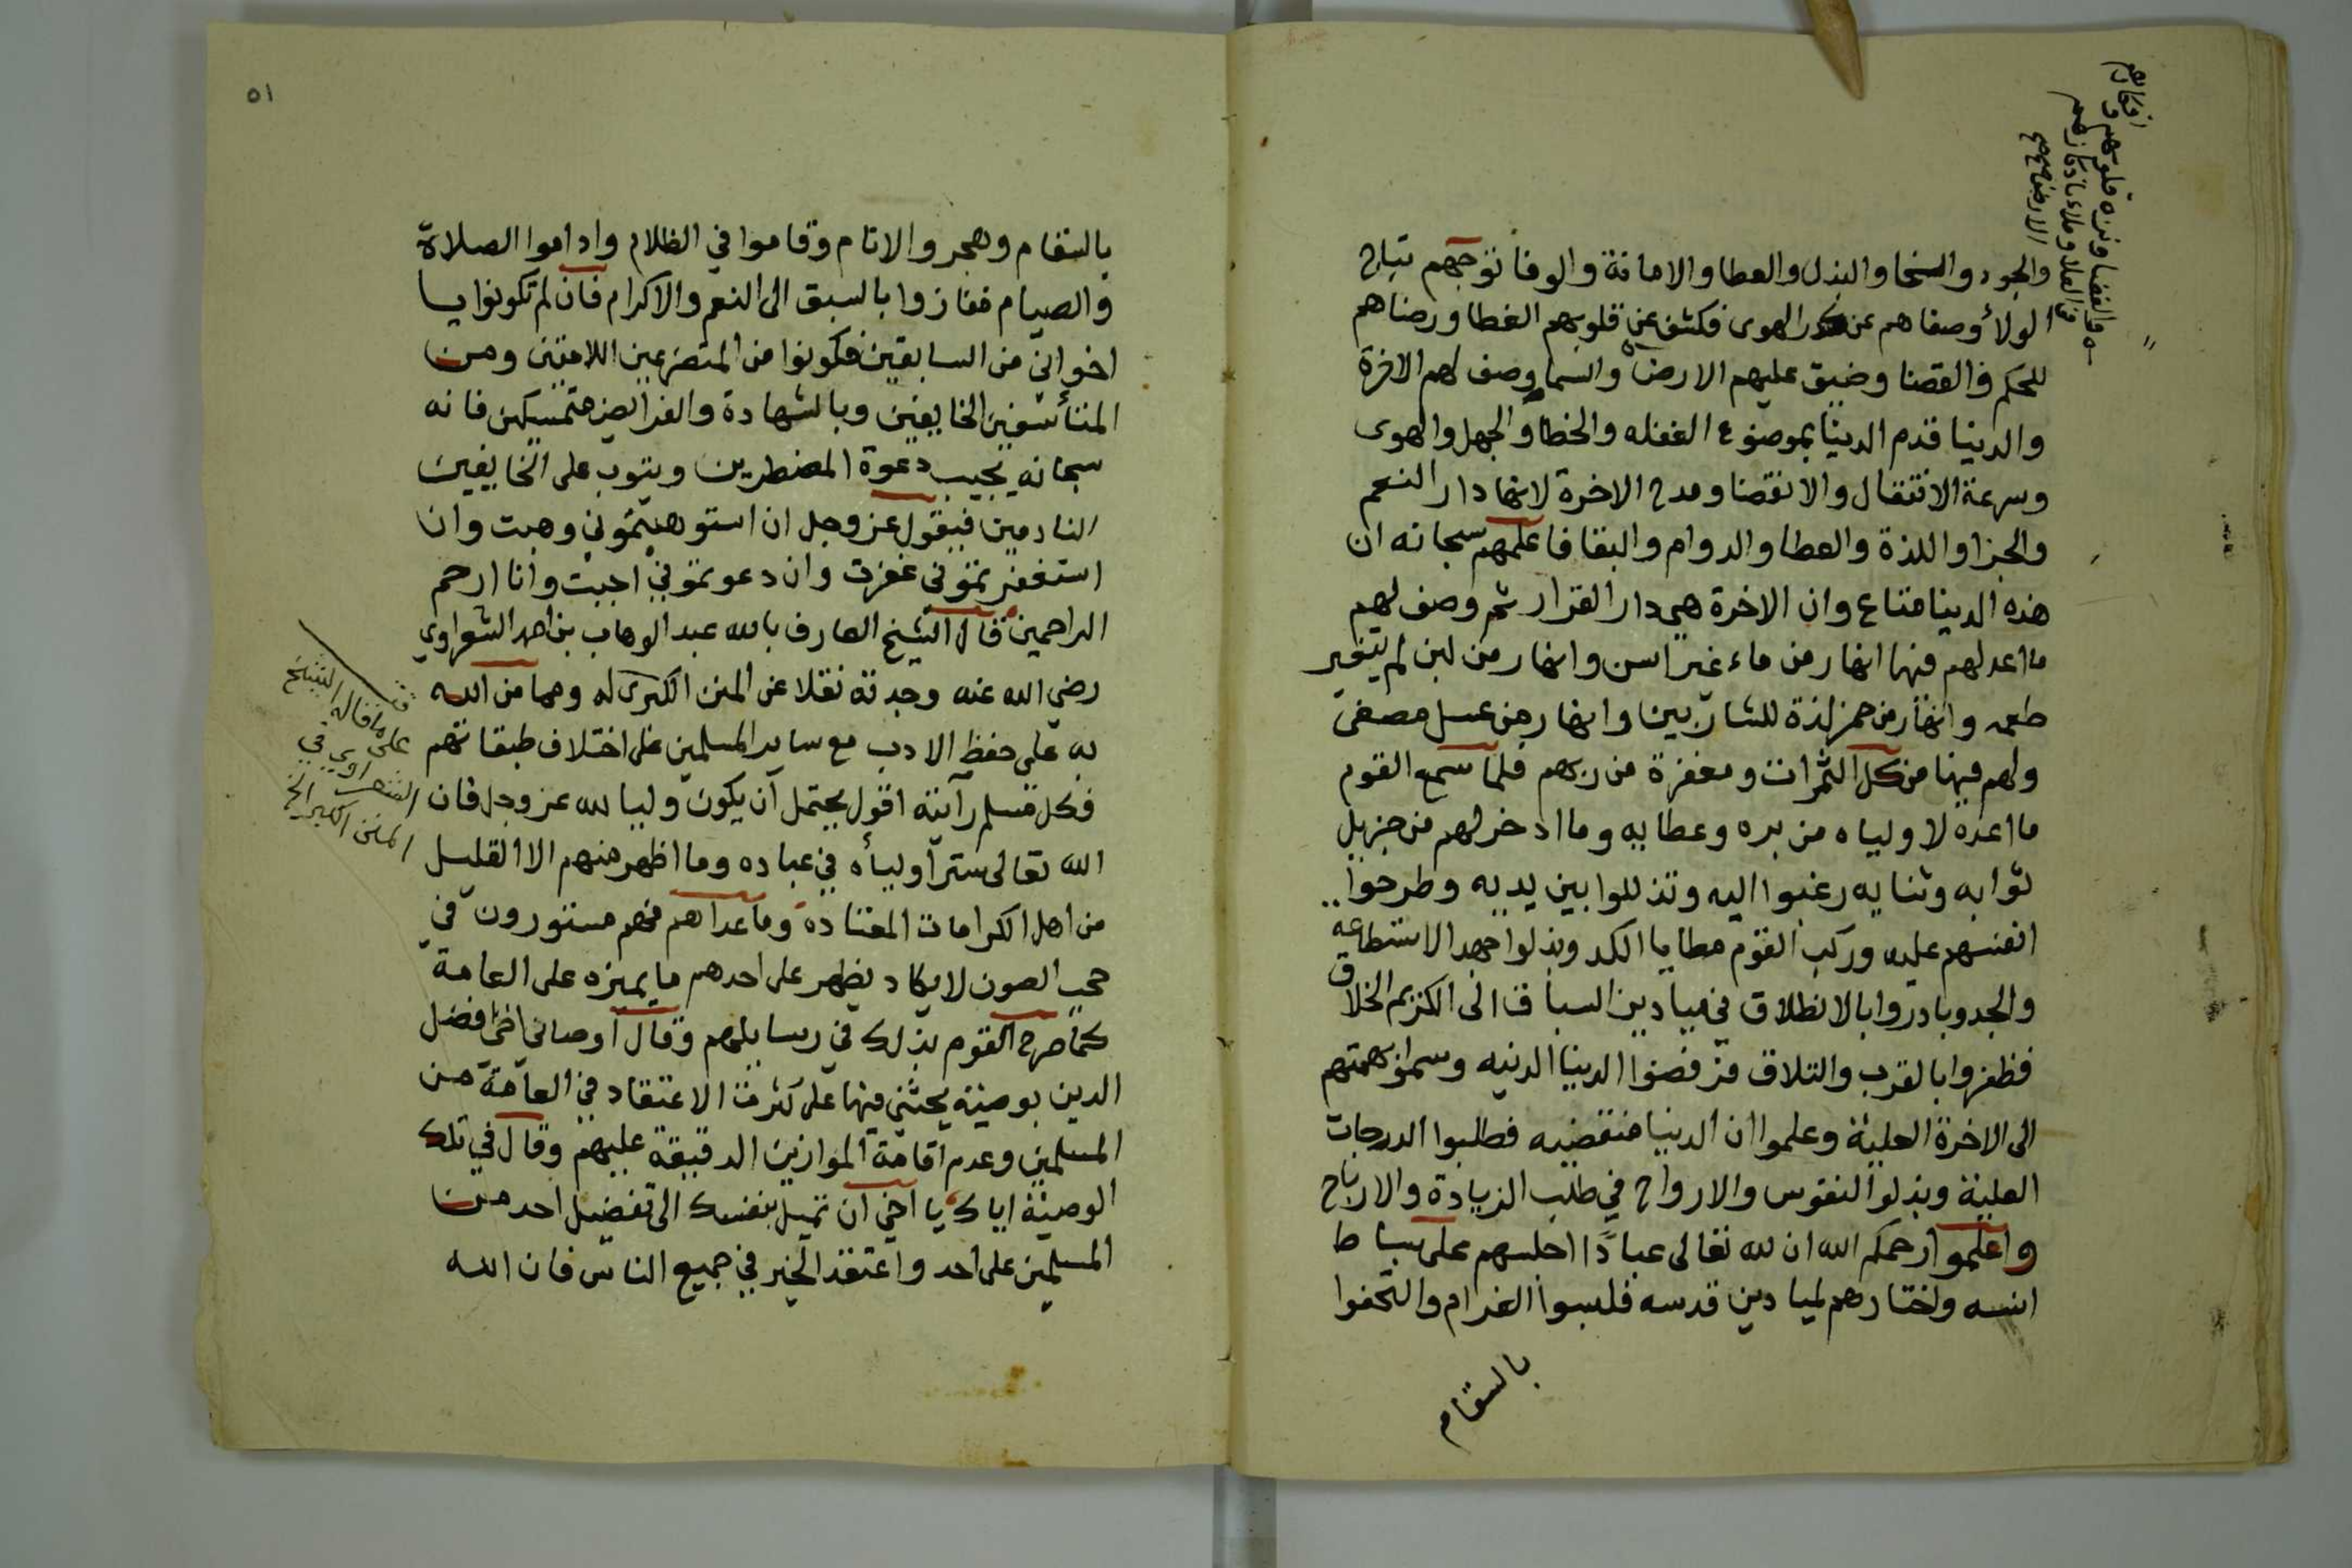 والجود والسخا والبذل والعطا والامانة والوفا توجهم بتاج
الولأ وصفاهم عن كدر الهوى فكشف عن قلوبهم الغطا ورضاهم
للحكم والقضا وضيق عليهم الارض والسما وصف لهم الاخرة
والدنيا قدم الدنيا بموضوع الغفله والخطا والجهل والهوى
وسرعة الانتقال والانقضا ومدح الاخرة لانها دار النعم
والجزا واللذة والعطا والدوام والبقا فاعلمهم سبحانه ان
هذه الدنيا متاع وان الاخرة هي دار القرار ثم وصف لهم
ما اعد لهم فيها انهار من ماء غير اسن وانهار من لبن لم يتغير
طعمه وانهار من خمر لذة للشاربين وانهار من عسل مصفى
ولهم فيها من كل الثمرات ومغفرة من ربهم فلما سمع القوم
ما اعده لاولياه من بره وعطايه وما ادخر لهم من جزيل
ثوابه وثنايه رغبوا اليه وتذللوا بين يديه وطرحوا
انفسهم عليه وركب القوم مطايا الكد وبذلوا جهد الاستطاعه
والجد وبادروا بالانطلاق في ميادين السباق الى الكريم الخلاق
فظفروا بالقرب والتلاق فرفضوا الدنيا الدنيه وسموا بهمتهم
الى الاخرة العلية وعلموا ان الدنيا منقضيه فطلبوا الدرجات
العلية وبذلوا النفوس والارواح في طلب الزيادة والارباح
واعلموا رحمكم الله ان لله تعالى عبادًا اجلسهم على بساط
انسه واختارهم لميادين قدسه فلبسوا الغرام والتحفوا
بالسقام
٥١
بالسقام وهجروا الانام وقاموا في الظلام واداموا الصلاة
والصيام ففازوا بالسبق الى النعم والاكرام فان لم تكونوا يا
اخواني من السابقين فكونوا من المتضرعين اللامتين ومن
المتأسفين الخايفين وبالشهادة والفرايض متمسكين فانه
سبحانه يجيب دعوة المضطرين ويتوب على الخايفين
النادمين فيقول عز وجل ان استوهبتموني وهبت وان
استغفرتموني غفرت وان دعوتموني اجبت وانا ارحم
الراحمين قال الشيخ العارف بالله عبد الوهاب بن احمد الشعراوي
رضي الله عنه وجدته نقلا عن المنن الكبرى له ومما من الله
به على حفظ الادب مع ساير المسلمين على اختلاف طبقاتهم
فكل مسلم رآيته اقول يحتمل ان يكون وليا لله عز وجل فان
الله تعالى ستر أوليأه في عباده وما اظهر منهم الا القليل
من اهل الكرامات المعتادة وما عداهم فهم مستورون في
حجب الصون لا يكاد يظهر على احدهم ما يميزه على العامة
كما صرح القوم بذلك في رسايلهم وقال اوصاني اخي افضل
الدين بوصية يحثني فيها على كثرت الاعتقاد في العامة من
المسلمين وعدم اقامة الموازين الدقيقة عليهم وقال في تلك
الوصية اياك يا اخي ان تميل بنفسك الى تفضيل احد من
المسلمين على احد واعتقد الخير في جميع الناس فان الله
على ما قاله الشيخ
الشعراوي في
المنن الكبير الخ